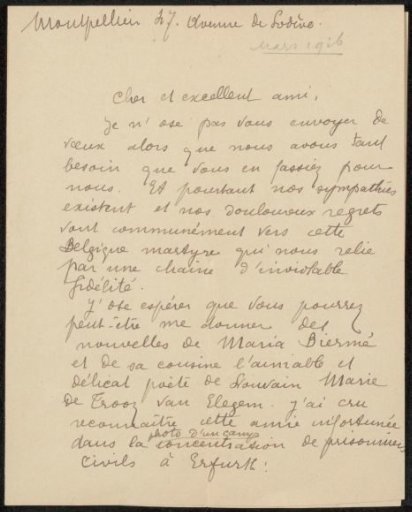 Montpellier 47. Avenue de Lodève.
Mars 1916
Cher et excellent ami,
Je n'ose pas vous envoyer de
vœux alors que nous avons tant
besoin que vous en fassiez pour
nous. Et pourtant nos sympathies
existent et nos douloureux regrets
vont communément vers cette
Belgique martyre qui nous relie
par une chaine d'inviolable
fidélité.
J'ose espérer que vous pourrez
peut-être me donner des
nouvelles de Maria Biermé
et de sa cousine l'aimable et
délicat poète de Louvain Marie
de Trooz van Elegem. j'ai cru
reconnaître cette amie infortunée
photo d'un camp
dans la concentration de prisonniers
civils à Erfurt!